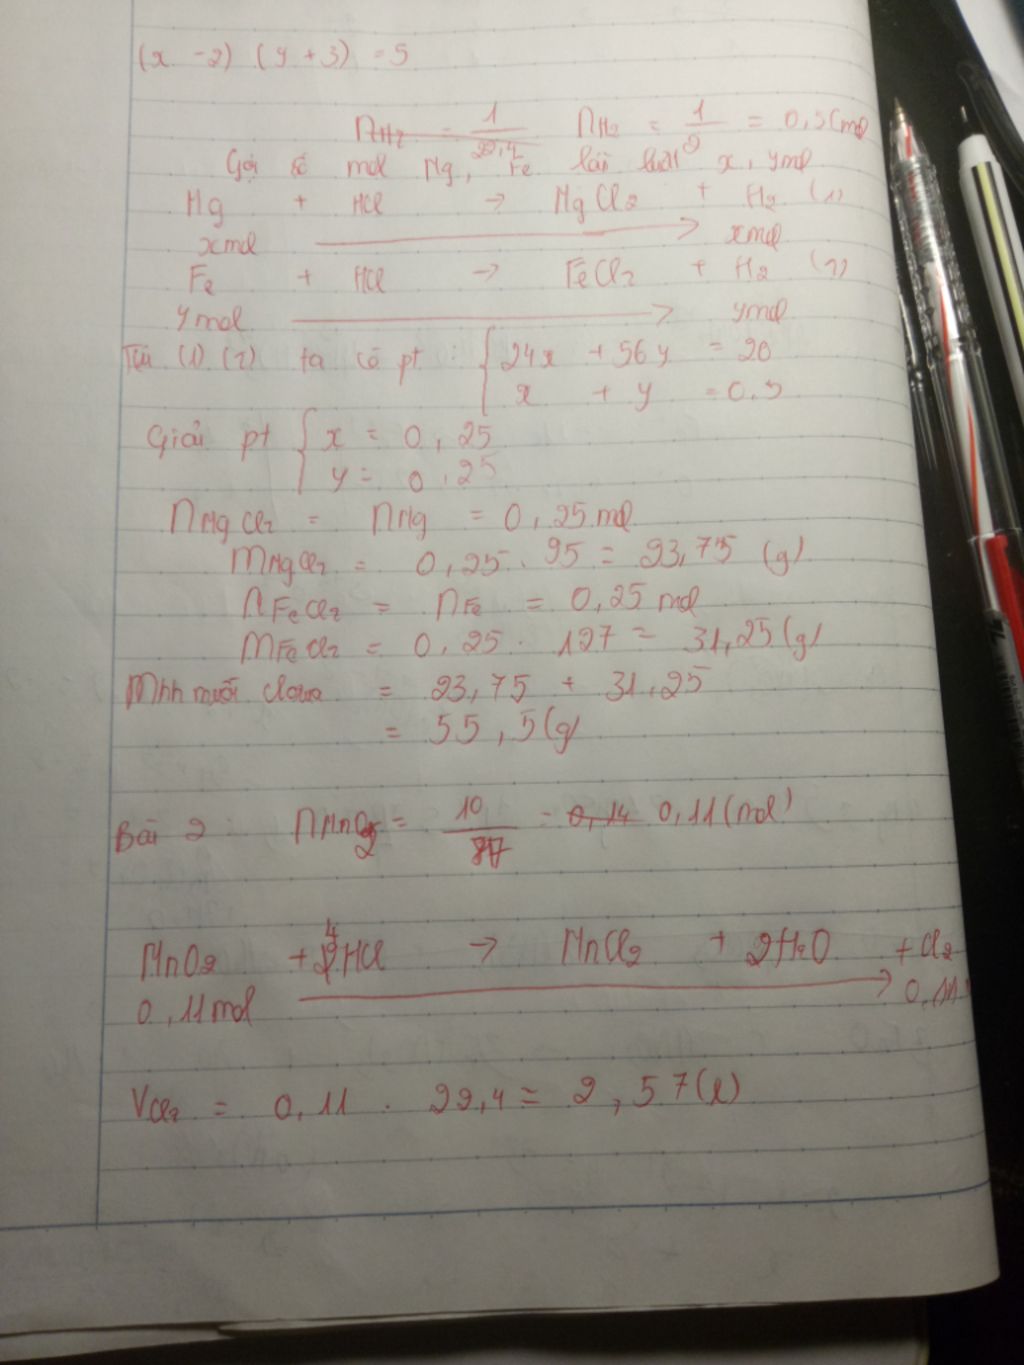 (x - 2) (y + 3) = 5
nH2 = 1/22,4 nH2 = 1/2 = 0,5 (mol
Gọi số mol Mg, Fe lần lượt x, y mol
Mg + HCl → MgCl2 + H2 (1)
x mol → x mol
Fe + HCl → FeCl2 + H2 (2)
y mol → y mol
Từ (1) (2) ta có pt : { 24x + 56y = 20
x + y = 0,5
Giải pt { x = 0,25
y = 0,25
nMgCl2 = nMg = 0,25 mol
mMgCl2 = 0,25 . 95 = 23,75 (g)
nFeCl2 = nFe = 0,25 mol
mFeCl2 = 0,25 . 127 = 31,25 (g)
mhh muối clorua = 23,75 + 31,25
= 55,5 (g)
Bài 2 : nMnO2 = 10/87 = 0,14 0,11 (mol)
MnO2 + 4HCl → MnCl2 + 2H2O + Cl2
0,11 mol → 0,11
VCl2 = 0,11 . 22,4 = 2,57 (l)